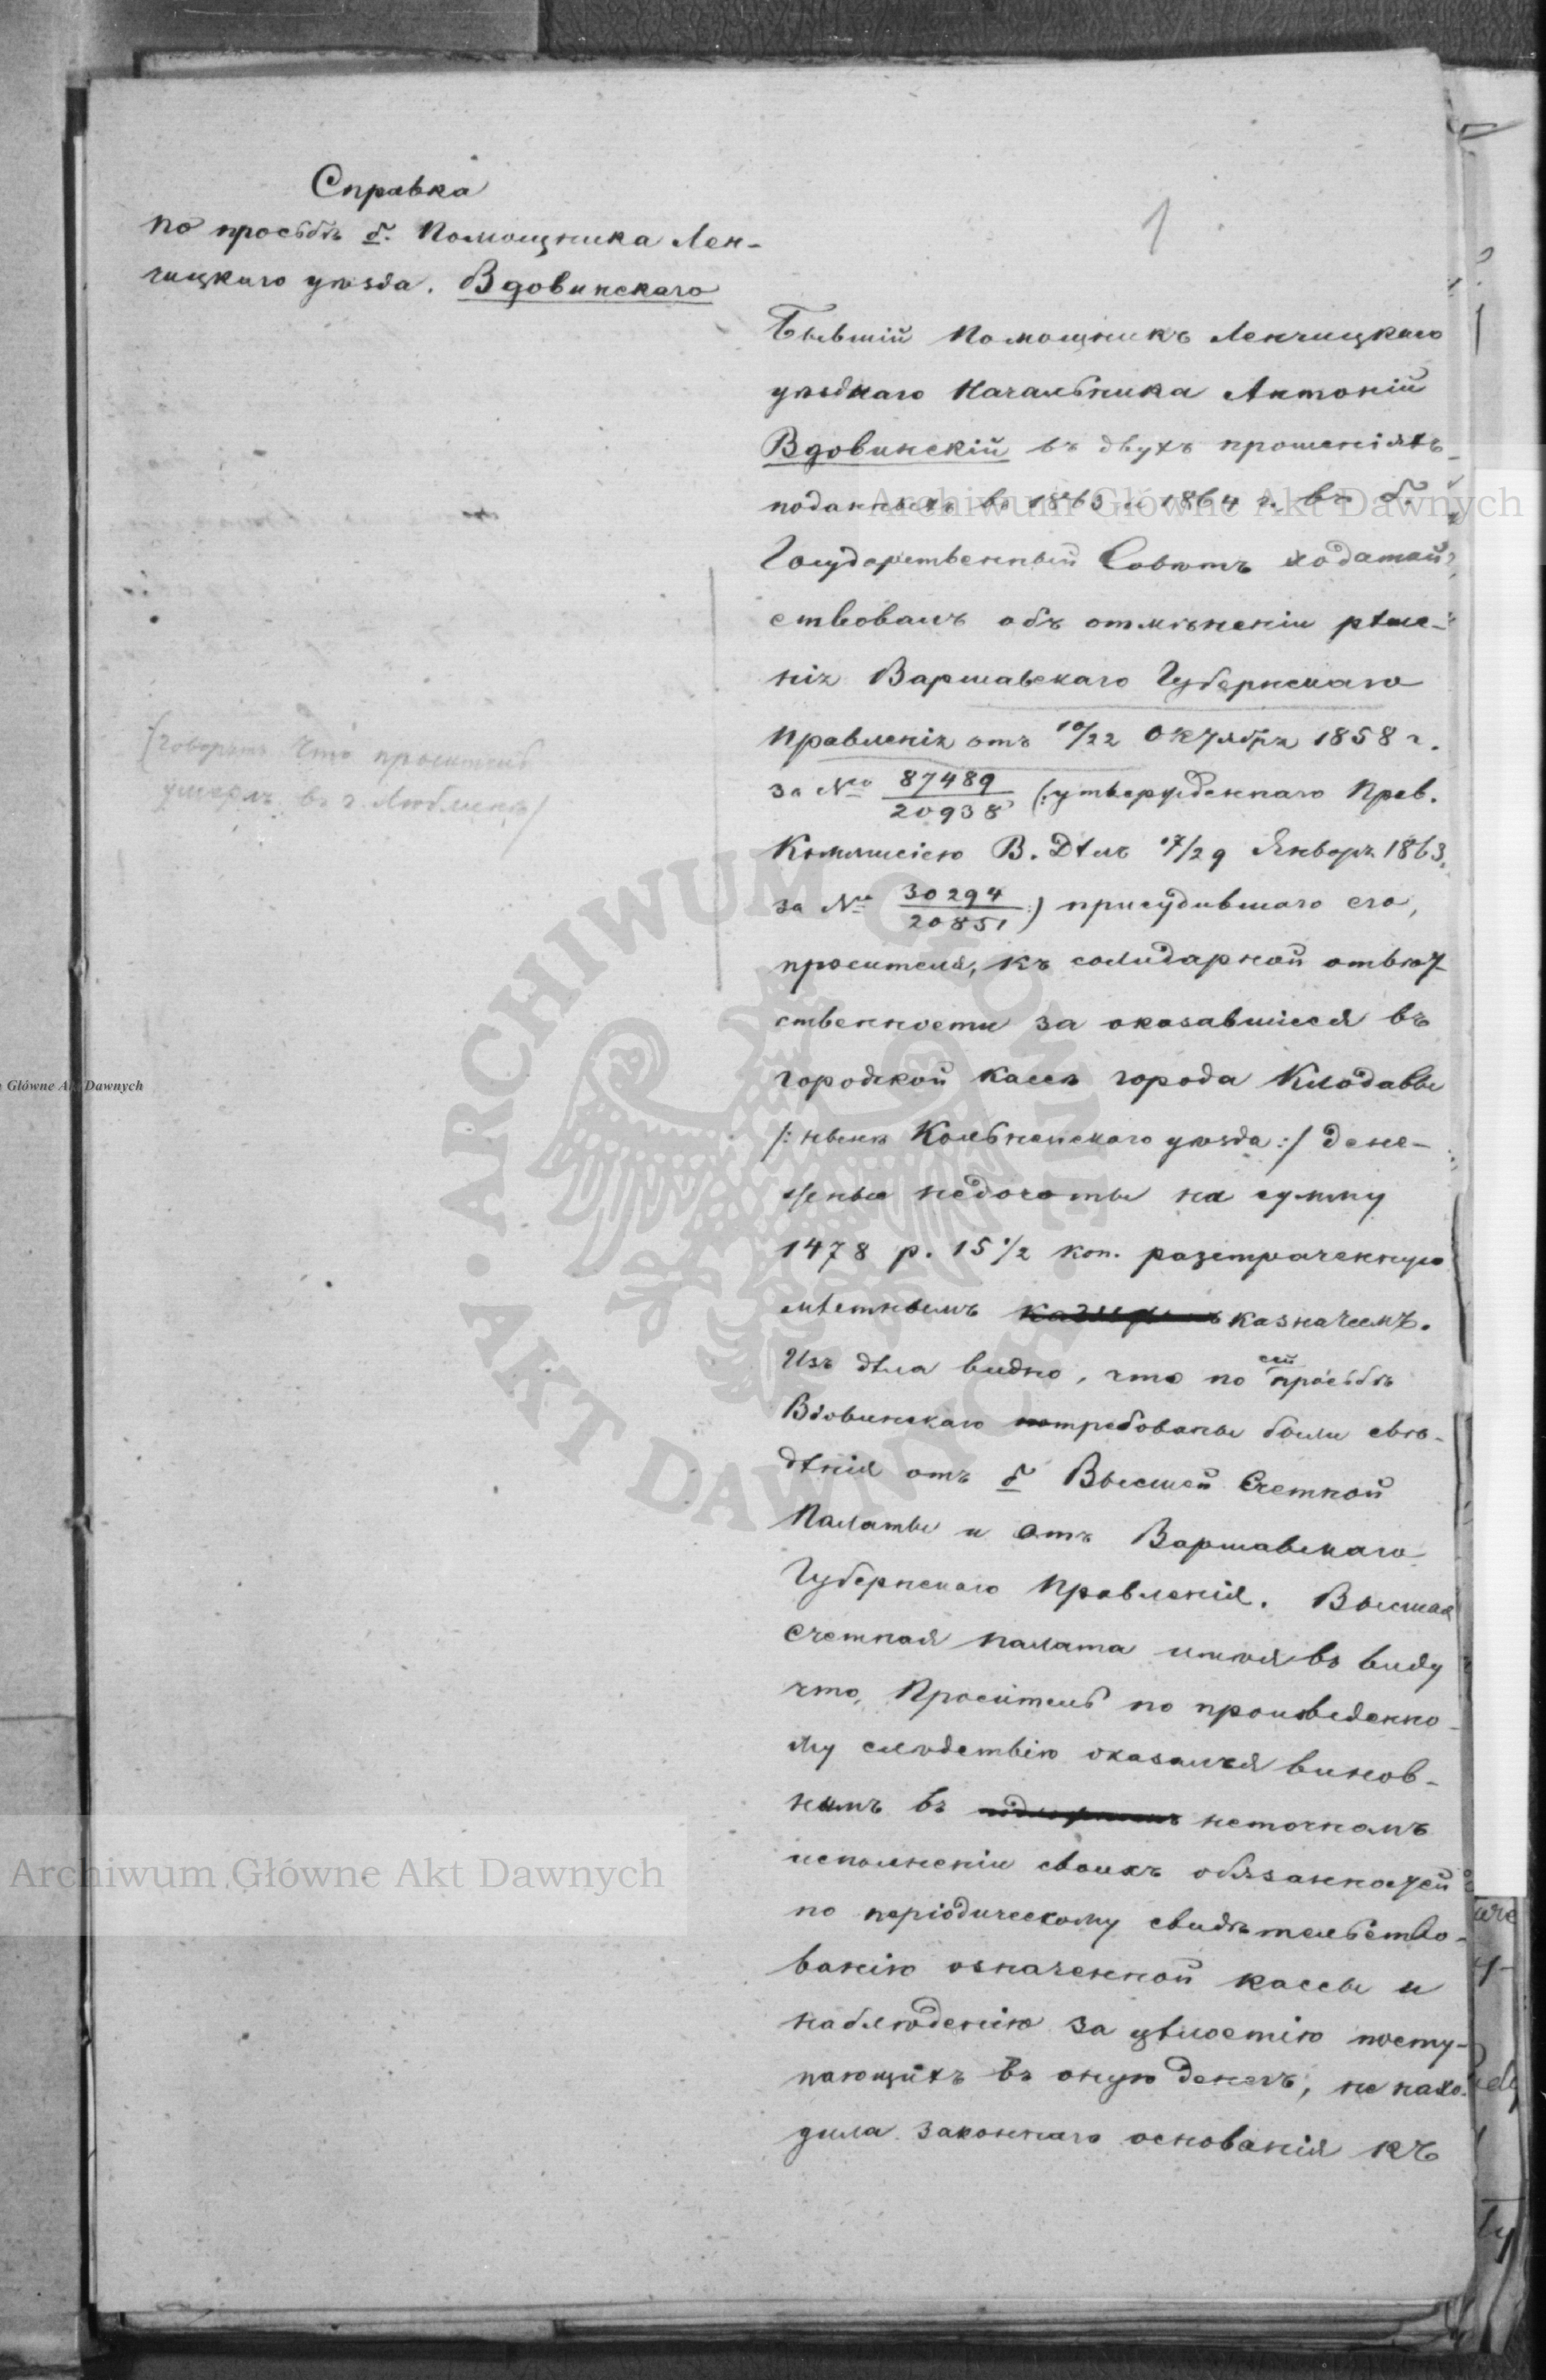 Справка
по просьбѣ б. Помощника Лен-
чицкаго уѣзда. Вдовинскаго
1
Бывшій Помощникъ Ленчицкаго
уѣзднаго Начальника Антоній
Вдовинскій въ двухъ прошеніяхъ
поданныхъ въ 1863 и 1864 г. въ б.
Государственный Совѣтъ ходатай-
ствовалъ объ отмѣненіи рѣше-
нія Варшавскаго Губернскаго
Правленія отъ 10/22 Октября 1858 г.
за № 87489/20938 (:утвержденнаго Прав.
Коммисіею В. Дѣлъ 17/29 Января 1863
за № 30294/20851:) присудившаго его,
просителя, къ солидарной отвѣт-
ственности за оказавшіеся въ
городской кассѣ города Клодавы
/:нынѣ Кольненскаго уѣзда:/ дене-
жные недочоты на сумму
1478 р. 15 1/2 коп. разтраченную
мѣстнымъ казначеемъ.
Изъ дѣла видно, что по сей просьбѣ
Вдовинскаго потребованы были свѣ-
дѣнія отъ б Высшей Счетной
Палаты и отъ Варшавскаго
Губернскаго Правленія. Высшая
Счетная палата имѣя въ виду
что, Проситель по произведенно-
му слѣдствію оказался винов-
нымъ въ неточномъ
исполненіи своихъ обязанностей
по періодическому свидѣтельство-
ванію означенной кассы и
наблюденію за цѣлостію посту-
пающихъ въ оную денегъ, не нахо-
дила законнаго основанія къ
(говорятъ что проситель
умеръ въ г. Люблинѣ/
Archiwum Główne Akt Dawnych
Główne Akt Dawnych
ARCHIWUM GŁÓWNE AKT DAWNYCH
Archiwum Główne Akt Dawnych